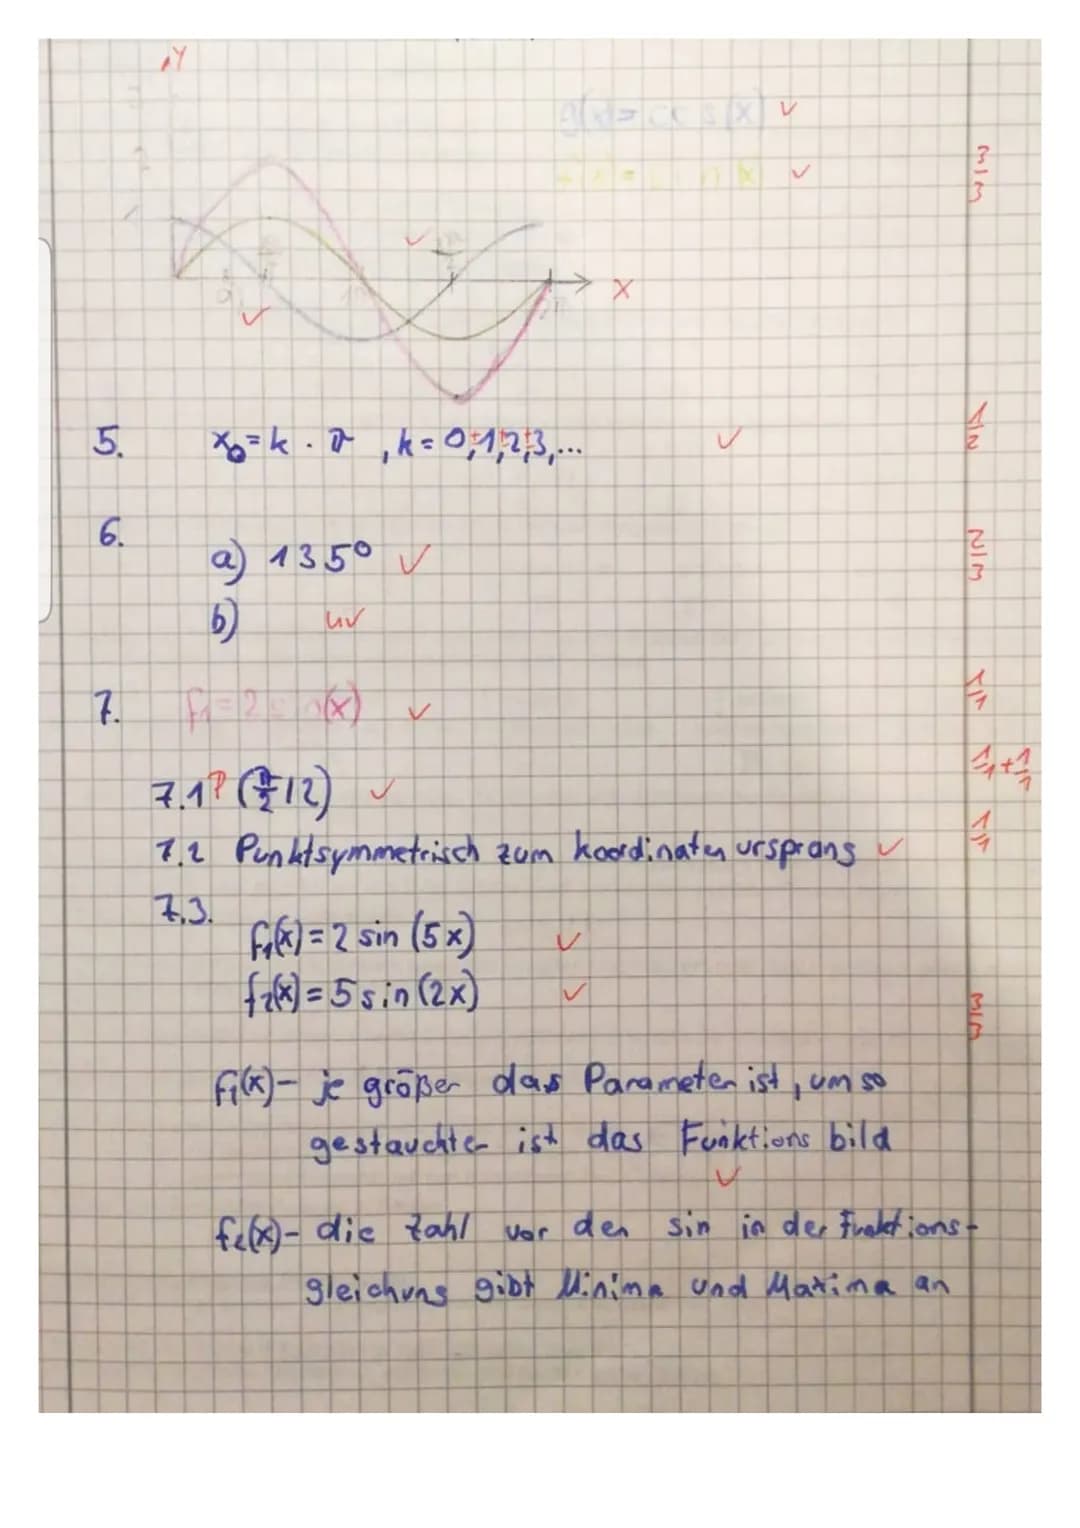 Y
g(x)= cos(x) ✓
f(x)= sin(x) ✓
3/3
x
5. x₀ = k · π , k = 0,±1,±2,±3,... ✓
1/2
6.
a) 135° ✓
2/3
b) uv
7. f₁ = 2 sin(x) ✓
1/1
7.1 P (π/2 | 2) ✓
1/1 + 1/1
7.2 Punktsymmetrisch zum koordinaten ursprang ✓
1/1
7.3.
f₁(x) = 2 sin (5x) ✓
f₂(x) = 5 sin (2x) ✓
3/3
f₁(x) – je größer das Parameter ist , um so
gestauchter ist das Funktions bild
✓
f₂(x) – die Zahl vor den sin in der Funktions-
gleichung gibt Minima und Maxima an